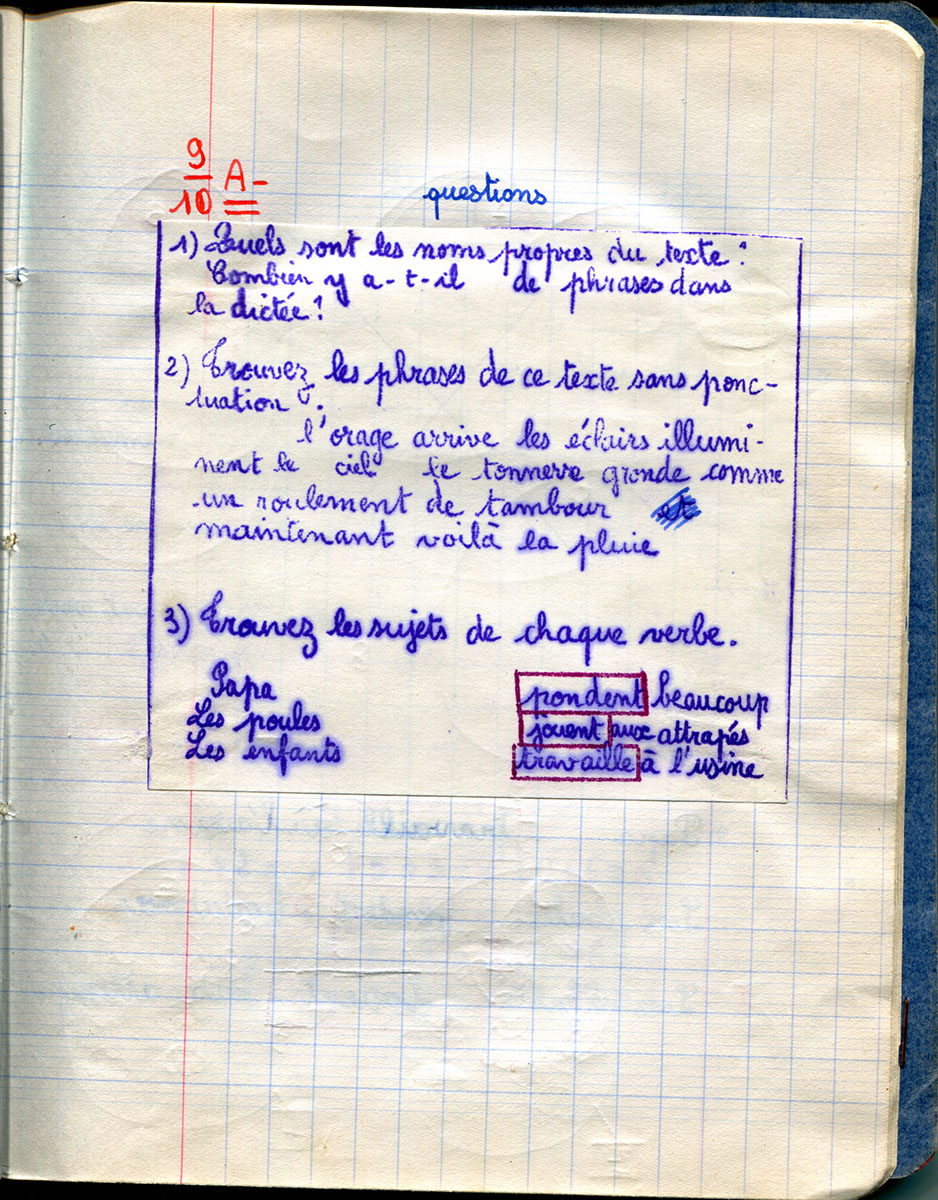 9/10 A-
questions
1) Quels sont les noms propres du texte?
Combien y a-t-il de phrases dans
la dictée?
2) Trouvez les phrases de ce texte sans ponc-
tuation.
l'orage arrive les éclairs illumi-
nent le ciel le tonnerre gronde comme
un roulement de tambour
maintenant voilà la pluie
3) Trouvez les sujets de chaque verbe.
Papa pondent beaucoup
Les poules jouent aux attrapés
Les enfants travaille à l'usine